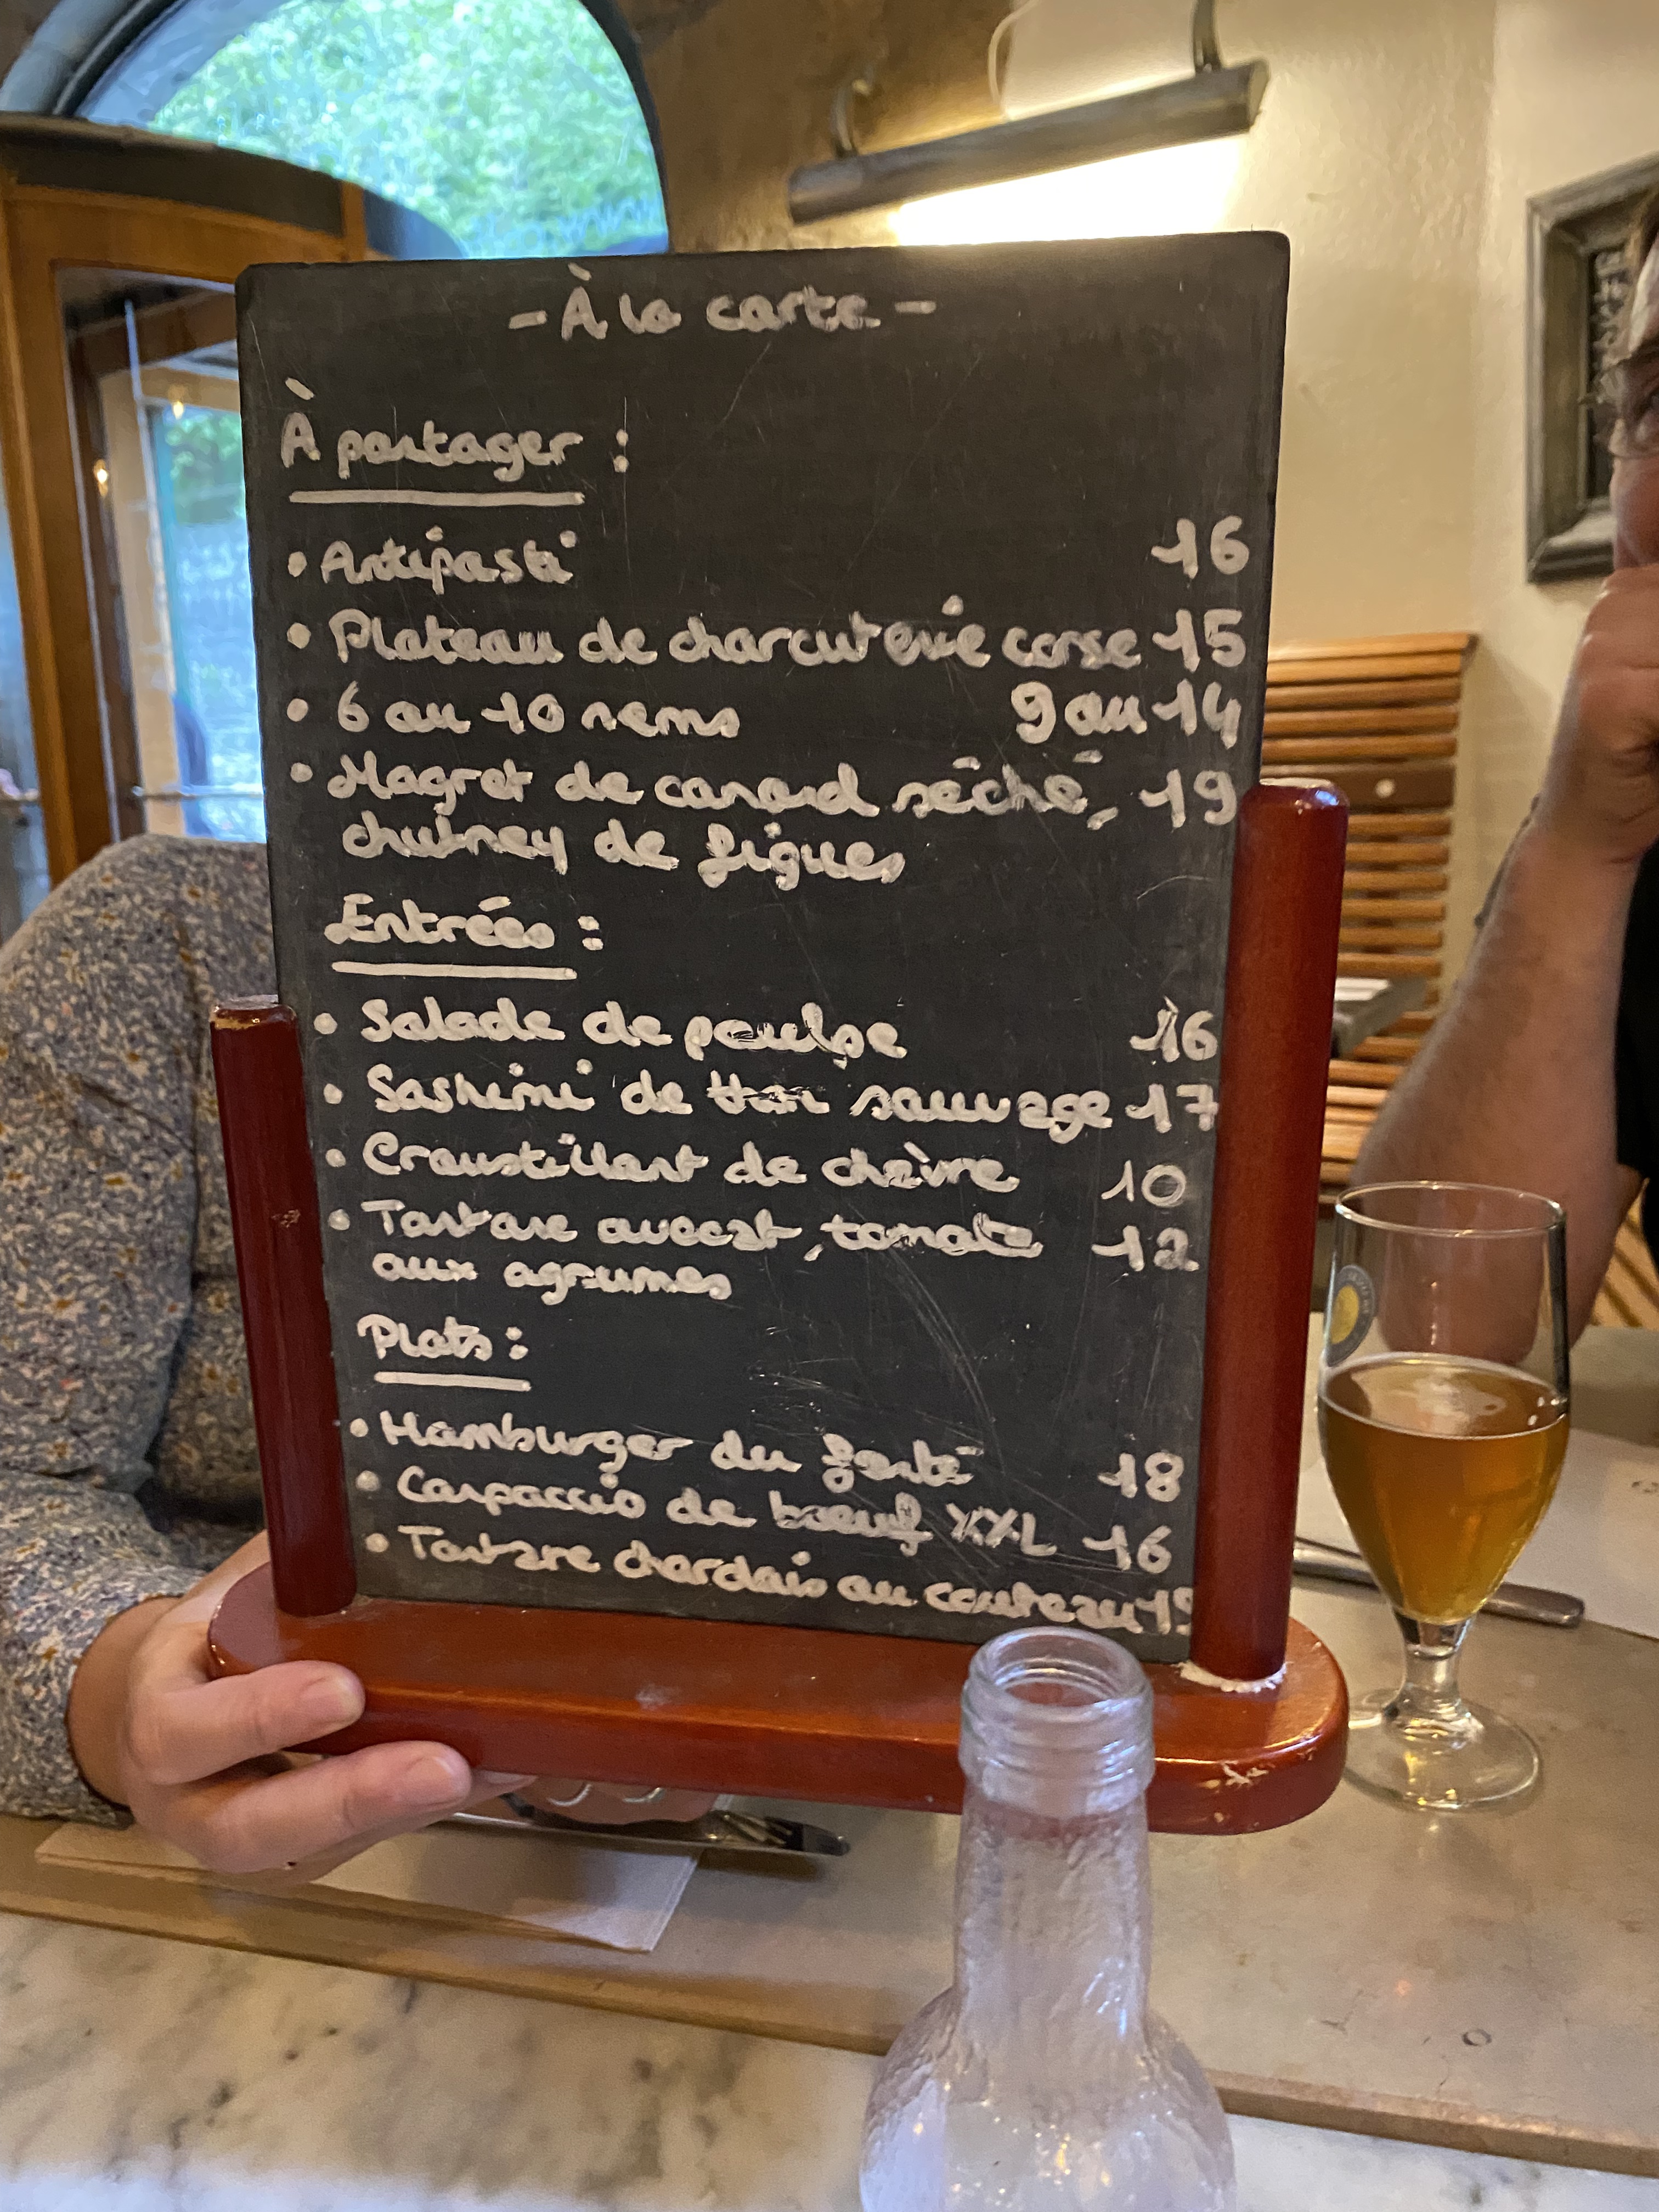 - À la carte -
À partager :
• Antipasti 16
• Plateau de charcuterie corse 15
• 6 ou 10 nems 9 ou 14
• Magret de canard séché, 19
chutney de figues
Entrées :
• Salade de poulpe 16
• Sashimi de thon sauvage 17
• Croustillant de chèvre 10
• Tartare avocat, tomate 12
aux agrumes
Plats :
• Hamburger du
 18
• Carpaccio de boeuf XXL 16
• Tartare charolais au couteau